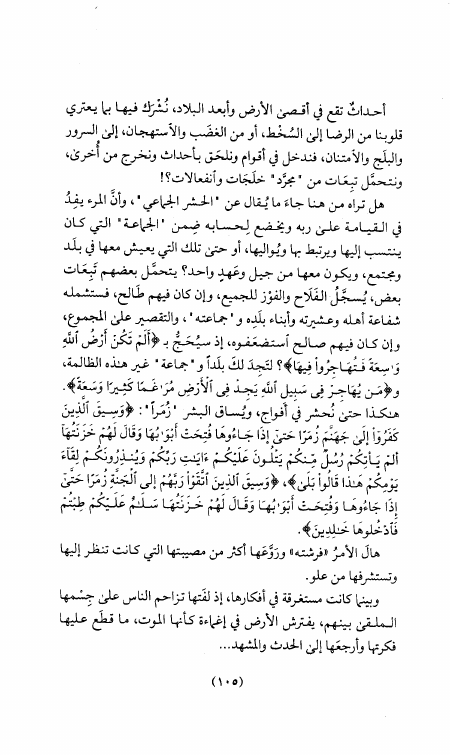 أحداثٌ تقع في أقصى الأرض وأبعد البلاد، نُشْرَك فيها بما يعتري
قلوبنا من الرضا إلى السُخْط، أو من الغضَب والاستهجان، إلى السرور
والبلَج والامتنان، فندخل في أقوام ونلحَق بأحداث ونخرج من أُخرى،
ونتحمَّل تبِعَات من "مجرَّد" خلَجَات وانفعالات؟!
هل تراه من هنا جاءَ ما يُقال عن "الحشر الجماعي"، وأنَّ المرء يفِدُ
في القيامة على ربه ويخضع لحسابه ضِمن "الجماعة" التي كان
ينتسب إليها ويرتبط بها ويُواليها، أو حتى تلك التي يعيش معها في بلَد
ومجتمع، ويكون معها من جيل وعَهدٍ واحد؟ يتحمَّل بعضهم تَبِعَات
بعض، يُسجَّلُ الفَلَاح والفوْز للجميع، وإن كان فيهم طَالح، فستشمله
شفاعة أهله وعشيرته وأبناء بلَدِه و"جماعته"، والتقصير على المجموع،
وإن كان فيهم صالح استضعفوه، إذ سيُحجُّ بـ ﴿أَلَمْ تَكُنْ أَرْضُ اللَّهِ
وَٰسِعَةً فَتُهَاجِرُوا فِيهَا﴾؟ لتَجِدَ لكَ بلَداً و"جماعة" غير هذه الظالمة،
و﴿مَن يُهَاجِرْ فِى سَبِيلِ اللَّهِ يَجِدْ فِى الْأَرْضِ مُرَٰغَمًا كَثِيرًا وَسَعَةً﴾.
هكذا حتى نُحشر في أفواج، ويُساق البشر "زُمَراً": ﴿وَسِيقَ الَّذِينَ
كَفَرُوٓا إِلَىٰ جَهَنَّمَ زُمَرًا حَتَّىٰٓ إِذَا جَاءُوهَا فُتِحَتْ أَبْوَٰبُهَا وَقَالَ لَهُمْ خَزَنَتُهَآ
أَلَمْ يَأْتِكُمْ رُسُلٌ مِّنكُمْ يَتْلُونَ عَلَيْكُمْ ءَايَٰتِ رَبِّكُمْ وَيُنذِرُونَكُمْ لِقَآءَ
يَوْمِكُمْ هَٰذَا قَالُوا بَلَىٰ﴾، ﴿وَسِيقَ الَّذِينَ اتَّقَوْا رَبَّهُمْ إِلَى الْجَنَّةِ زُمَرًا حَتَّىٰٓ
إِذَا جَاءُوهَا وَفُتِحَتْ أَبْوَٰبُهَا وَقَالَ لَهُمْ خَزَنَتُهَا سَلَٰمٌ عَلَيْكُمْ طِبْتُمْ
فَادْخُلُوهَا خَٰلِدِينَ﴾.
هالَ الأمرُ «فرشته» وروَّعَها أكثر من مصيبتها التي كانت تنظر إليها
وتستشرفها من علو.
وبينما كانت مستغرقة في أفكارها، إذ لفَتها تزاحم الناس على جِسْمها
الملقى بينهم، يفترش الأرض في إغماءة كأنها الموت، ما قطَع عليها
فكرتها وأرجعَها إلى الحدث والمشهد...
(١٠٥)